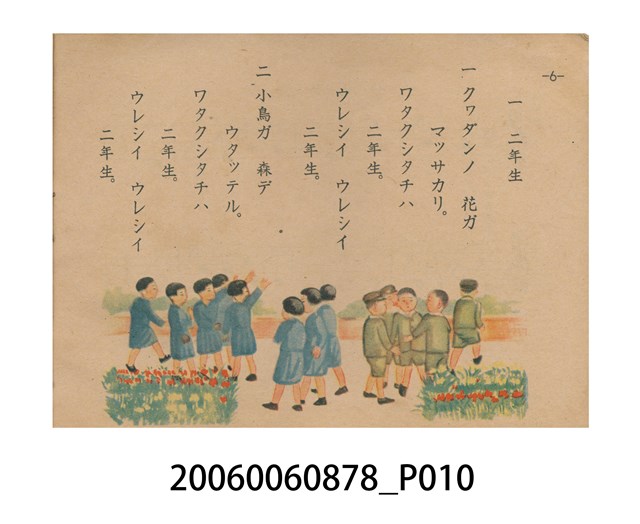 —6—
一 二年生
一 クヮダンノ 花ガ
マッサカリ。
ワタクシタチハ
二年生。
ウレシイ ウレシイ
二年生。
二 小鳥ガ 森デ
ウタッテル。
ワタクシタチハ
二年生。
ウレシイ ウレシイ
二年生。
20060060878_P010